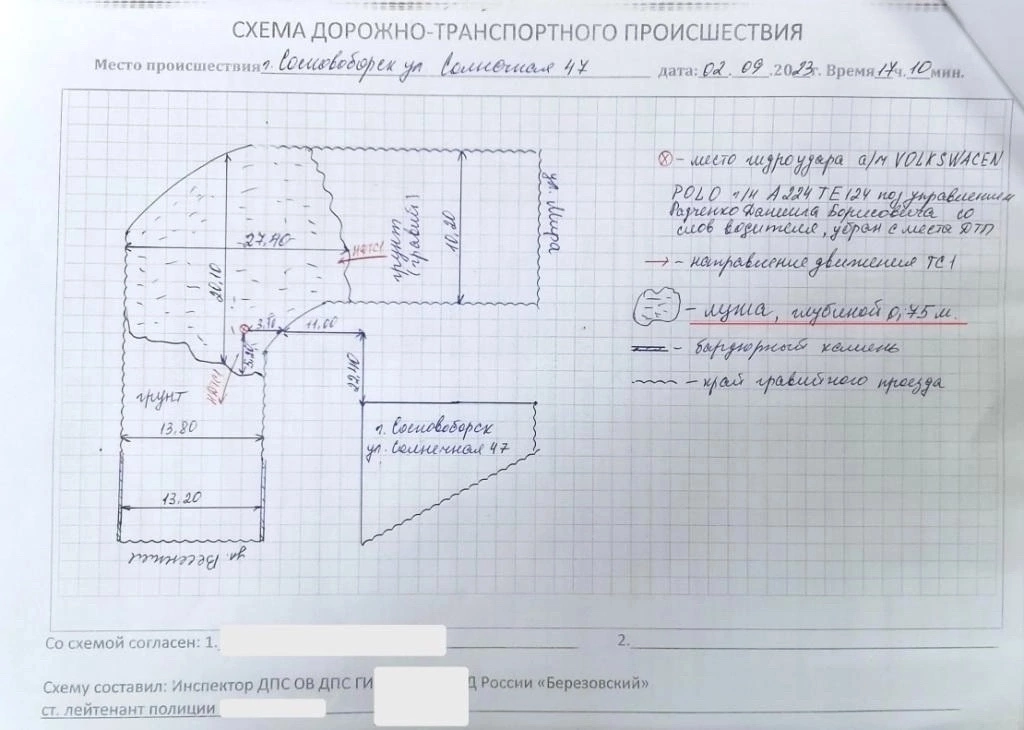 СХЕМА ДОРОЖНО-ТРАНСПОРТНОГО ПРОИСШЕСТВИЯ
Место происшествия г. Сосновоборск ул Солнечная 47 дата: 02.09.2023г. Время 17ч. 10мин.
⊗ - место гидроудара а/м VOLKSWAGEN
POLO г/н А224ТЕ124 под управлением
Радченко Даниила Борисовича со
слов водителя, убран с места ДТП
→ - направление движения ТС1
- лужа, глубиной 0,75 м.
- бардюрный камень
- край гравийного проезда
ул. Мира
грунт
(гравий)
10,20
27,40
20,10
НДТС1
3,80
11,00
22,40
НДТС1
грунт
13,80
г. Сосновоборск
ул. Солнечная 47
13,20
ул. Весенняя
Со схемой согласен: 1. 2.
Схему составил: Инспектор ДПС ОВ ДПС ГИ Д России «Березовский»
ст. лейтенант полиции